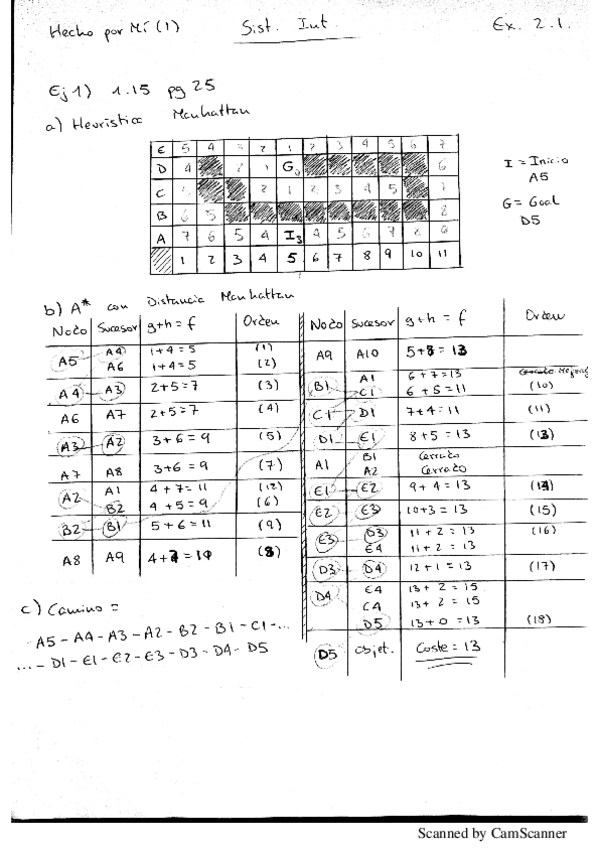 Hecho por Mí (1) Sist. Int. Ex. 2.1.
Ej 1) 1.15 pg 25
a) Heurística Manhattan
E 5 4 3 2 1 2 3 4 5 6 7
D 4 2 1 G0 6
C 2 1 2 3 4 5
B 6 5 8
A 7 6 5 4 I3 4 5 6 7 8 9
1 2 3 4 5 6 7 8 9 10 11
I = Inicio
A5
G = Goal
D5
b) A* con Distancia Manhattan
Nodo Sucesor g+h = f Orden
A5 A4 1+4=5 (1)
A6 1+4=5 (2)
A4 A3 2+5=7 (3)
A6 A7 2+5=7 (4)
A3 A2 3+6=9 (5)
A7 A8 3+6=9 (7)
A2 A1 4+7=11 (12)
B2 4+5=9 (6)
B2 B1 5+6=11 (9)
A8 A9 (8)
Nodo Sucesor g+h = f Orden
A9 A10 5+8=13
B1 A1 6+7=13
C1 6+5=11 (10)
C1 D1 7+4=11 (11)
D1 E1 8+5=13 (13)
A1 B1 Cerrado
A2 Cerrado
E1 E2 9+4=13
E2 E3 10+3=13 (15)
E3 D3 11+2=13 (16)
E4 11+2=13
D3 D4 12+1=13 (17)
D4 E4 13+2=15
C4 13+2=15
D5 13+0=13 (18)
D5 objet. Coste=13
c) Camino =
A5-A4-A3-A2-B2-B1-C1-...
...-D1-E1-E2-E3-D3-D4-D5
Scanned by CamScanner